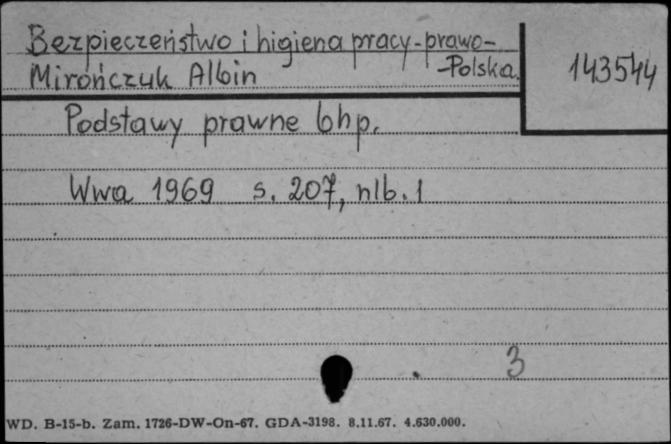 Bezpieczeństwo i higiena pracy-prawo-
-Polska.
Mirończuk Albin
143544
Podstawy prawne bhp.
Wwa 1969 s. 207, nlb. 1
3
WD. B-15-b. Zam. 1726-DW-On-67. GDA-3198. 8.11.67. 4.630.000.